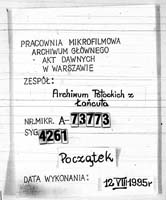 PRACOWNIA MIKROFILMOWA
ARCHIWUM GŁÓWNEGO
AKT DAWNYCH
W WARSZAWIE
ZESPÓŁ:
Archiwum Potockich z
Łańcuta
NR.MIKR. A-73773
SYG.
4261
Początek
DATA WYKONANIA:
12 VIII 1985r